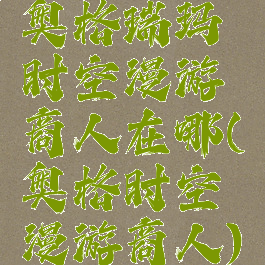 奥格瑞玛
时空漫游
商人在哪(
奥格时空
漫游商人)